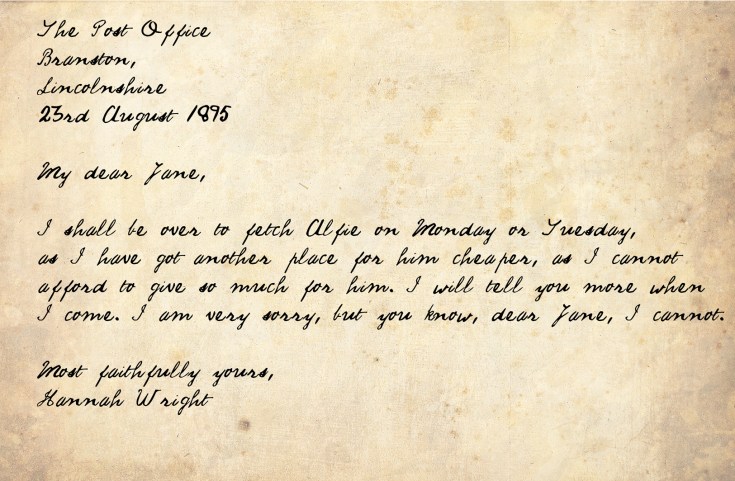 The Post Office
Branston,
Lincolnshire
23rd August 1895
My dear Jane,
I shall be over to fetch Alfie on Monday or Tuesday,
as I have got another place for him cheaper, as I cannot
afford to give so much for him. I will tell you more when
I come. I am very sorry, but you know, dear Jane, I cannot.
Most faithfully yours,
Hannah Wright